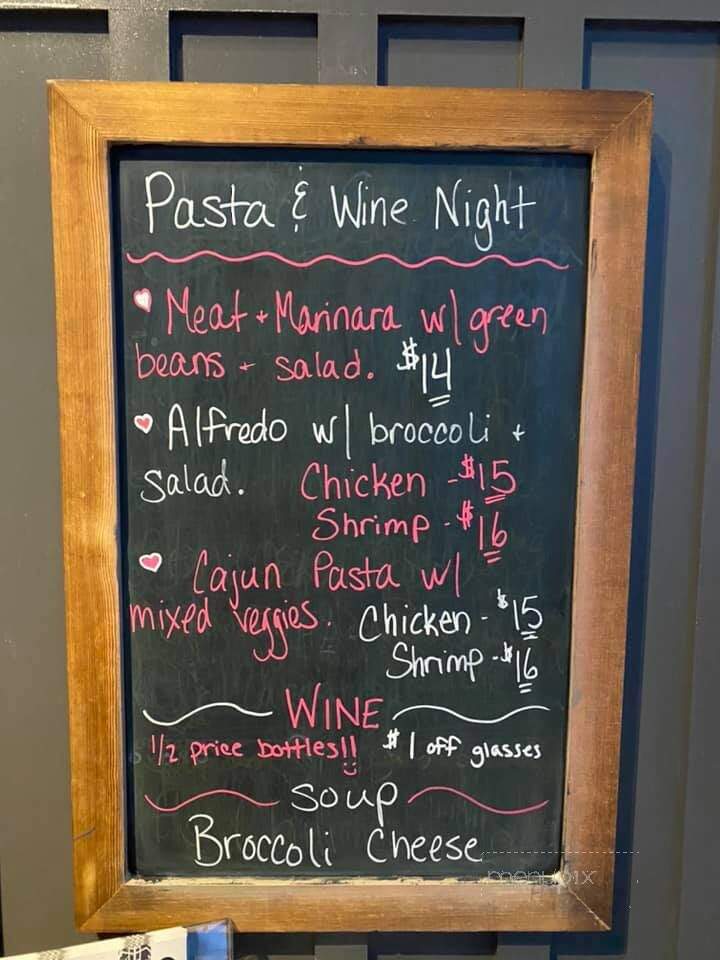 Pasta & Wine Night
Meat + Marinara w/ green
beans + salad. $14
Alfredo w/ broccoli +
salad. Chicken - $15
Shrimp - $16
Cajun Pasta w/
mixed veggies. Chicken - $15
Shrimp - $16
WINE
1/2 price bottles!! $1 off glasses
soup
Broccoli Cheese
menupix